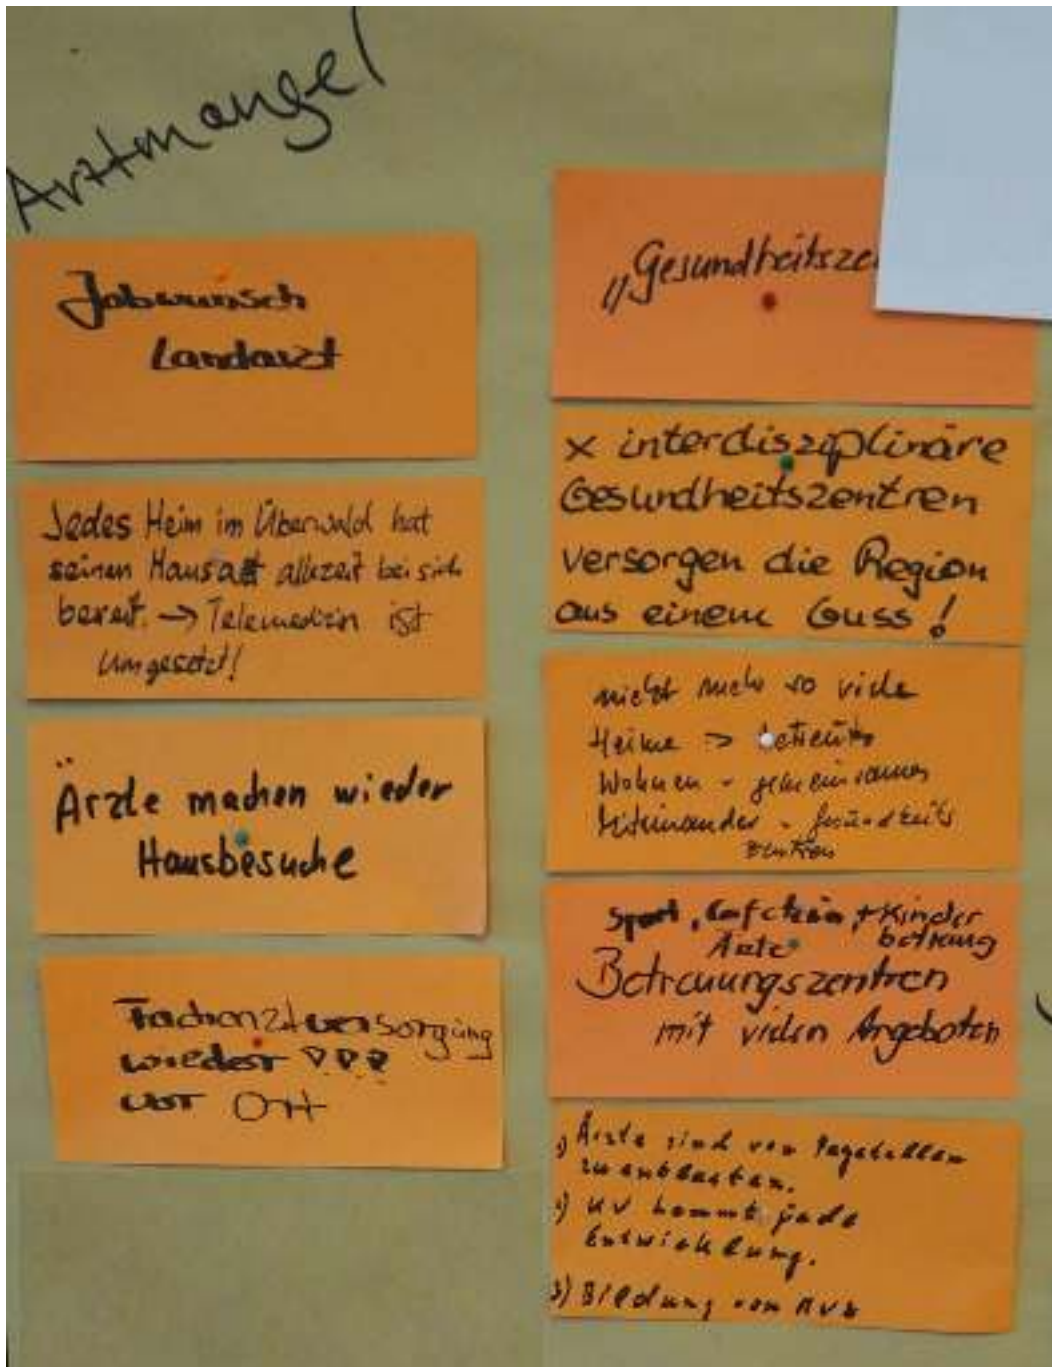 Arztmangel
Jobwunsch
Landarzt
Jedes Heim im Überwald hat
seinen Hausarzt allezeit bei sich
bereit. → Telemedizin ist
Umgesetzt!
Ärzte machen wieder
Hausbesuche
Facharztversorgung
wieder
vor Ort
„Gesundheitsze
x interdisziplinäre
Gesundheitszentren
versorgen die Region
aus einem Guss!
nicht mehr so viele
Heime => betreutes
Wohnen - gemeinsames
Miteinander - Gesundheits
zentren
Sport, + Kinder
Ärzte betreuung
Betreuungszentren
mit vielen Angeboten
1) Ärzte sind von
zu entlasten.
2) KV hemmt jede
Entwicklung.
3) Bildung von MVZ